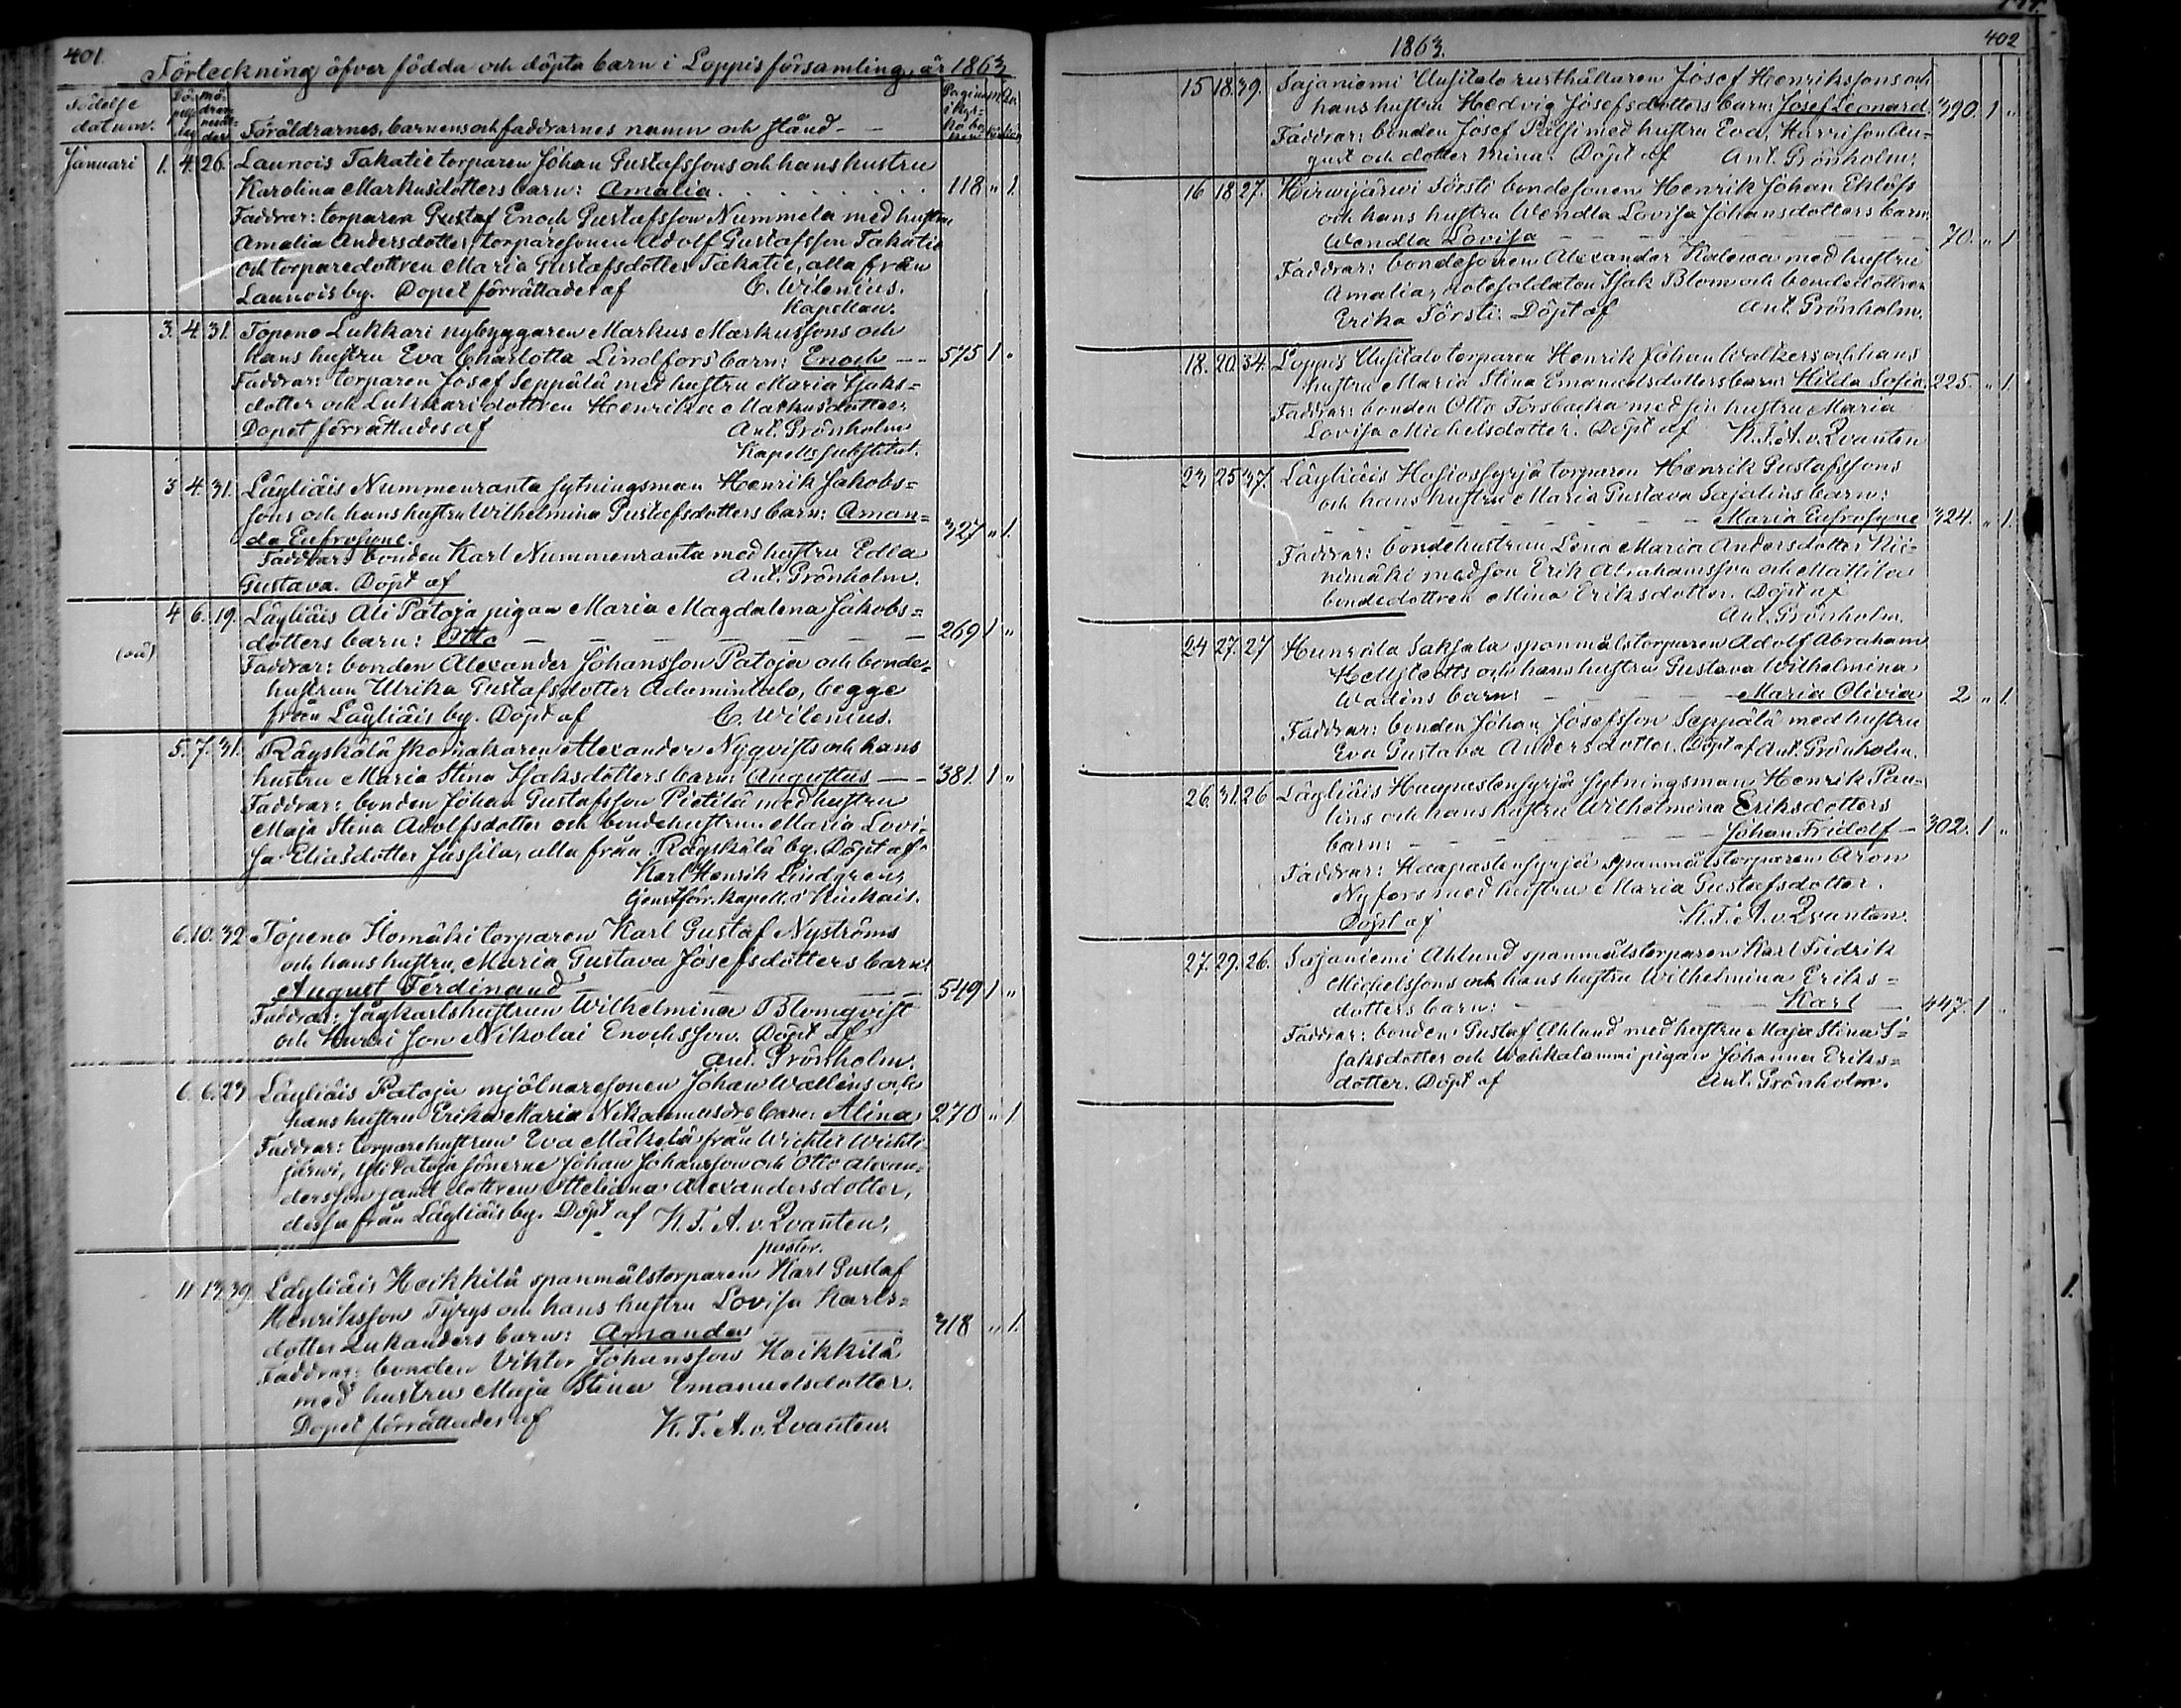 401.
Förteckning öfver födda och döpta barn i Loppis församling, år 1863
Födelse datum.
Föräldrarnes, barnens och faddrarnes namn och stånd - -
Januari 1. 4. 26. Launois Takatie torparen Johan Gustafssons och hans hustru
Karolina Markusdotters barn: Amalia . . . . . . . . 118 " 1.
Faddrar: torparen Gustaf Enoch Gustafsson Nummela med hustru
Amalia Andersdotter, torparesonen Adolf Gustafsson Takatie
och torparedottren Maria Gustafsdotter Takatie, alla från
Launois by. Dopet förrättades af C. Wilenius.
Kapellan.
3. 4. 31. Topeno Lukkari nybyggaren Markus Markussons och
hans hustru Eva Charlotta Lindfors barn: Enoch - - 575 1 "
Faddrar: torparen Josef Seppälä med hustru Maria Isaks=
dotter och Lukkari dottren Henrika Markusdotter.
Dopet förrättades af Ant. Grönholm
Kapells substitut.
3 4. 31. Läyliäis Nummenranta sytningsman Henrik Jakobs=
sons och hans hustru Wilhelmina Gustafsdotters barn: Aman=
da Eufrosyne. 327 " 1.
Faddrar: bonden Karl Nummenranta med hustru Edla
Gustava. Döpt af Ant. Grönholm.
4 6. 19. Läyliäis Ali Patoja pigan Maria Magdalena Jakobs=
(oä) dotters barn: Otto - - - - - - 269 1 "
Faddrar: bonden Alexander Johansson Patoja och bonde=
hustrun Ulrika Gustafsdotter Adamintalo, begge
från Läyliäis by. Döpt af C. Wilenius.
5. 7. 31. Räyskälä skomakaren Alexander Nyqvists och hans
hustru Maria Stina Isaksdotters barn: Augustus - - 381. 1 "
Faddrar: bonden Johan Gustafsson Pietilä med hustru
Maja Stina Adolfsdotter och bondehustrun Maria Lovi=
sa Eliasdotter Jussila, alla från Räyskälä by. Döpt af
Karl Henrik Lindgren,
6. 10. 32 Topeno Ilomäki torparen Karl Gustaf Nyströms
och hans hustru Maria Gustava Josefsdotters barn:
August Ferdinand - - - - 549 1 "
Faddrar: Sågkarlshustrun Wilhelmina Blomqvist
och Hurri son Nikolai Enochsson. Döpt af
Ant. Grönholm.
6. 6. 23 Läyliäis Patoja mjölnaresonen Johan Wallens och
hans hustru Erika Maria Nikodemusdrs barn: Alina 270 " 1
Faddrar: torparehustrun Eva Mäkelä från Wichtis Wichti
järwi, Yli Patoja sönerne Johan Johansson och Otto Alexan=
dersson samt dottren Otteliana Alexandersdotter,
dessa från Läyliäis by. Döpt af K. F. A. v. Qvanten,
pastor.
11 13 39 Läyliäis Heikkilä spanmålstorparen Karl Gustaf
Henriksson Tyrys och hans hustru Lovisa Karls=
dotter Lukanders barn: Amanda - - - 318 " 1.
Faddrar: bonden Viktor Johansson Heikkilä
med hustru Maja Stina Emanuelsdotter.
Dopet förrättades af K. F. A. v. Qvanten.
402
1863.
15 18 39. Sajaniemi Uusitalo rusthållaren Josef Henrikssons och
hans hustru Hedvig Josefsdotters barn: Josef Leonard. 390. 1 "
Faddrar: bonden Josef Pälsi med hustru Eva, Harri son Au=
gust och dotter Mina. Döpt af Ant. Grönholm.
16 18 27. Hirwijärwi Törsti bondesonen Henrik Johan Eklöfs
och hans hustru Wendla Lovisa Johansdotters barn:
Wendla Lovisa - - - - - - 70. " 1
Faddrar: bondesonen Alexander Kalewa med hustru
Amalia, rotesoldaten Isak Blom och bondedottren
Erika Törsti. Döpt af Ant. Grönholm.
18. 20. 34. Loppis Uusitalo torparen Henrik Johan Walkers och hans
hustru Maria Stina Emanuelsdotters barn: Hilda Sofia. 225. " 1
Faddrar: bonden Otto Forsbacka med sin hustru Maria
Lovisa Michelsdotter. Döpt af K. F. A. v. Qvanten
23 25 37. Läyliäis Hasiosyrjä torparen Henrik Gustafssons
och hans hustru Maria Gustava Sajalins barn:
- - - - - - Maria Eufrosyne 324. " 1.
Faddrar: bondehustrun Lena Maria Andersdotter Nii=
nimäki med son Erik Abrahamsson och Mattila
bondedottren Mina Eriksdotter. Döpt af
Ant. Grönholm.
24 27. 27 Hunsala Saksala spanmålstorparen Adolf Abraham
Hellstedts och hans hustru Gustava Wilhelmina
Wadens barn: - - - Maria Olivia 2 " 1.
Faddrar: bonden Johan Josefsson Seppälä med hustru
Eva Gustava Andersdotter. Döpt af Ant. Grönholm.
26. 31. 26 Läyliäis Haapastensyrjä sytningsman Henrik Pau=
lins och hans hustru Wilhelmina Eriksdotters
barn: - - - - - - Johan Fridolf - 302. 1 "
Faddrar: Haapastensyrjä spanmålstorparen Aron
Nyfors med hustru Maria Gustafsdotter.
Döpt af K. F. A. v. Qvanten.
27. 29. 26. Sajaniemi Ahlund spanmålstorparen Karl Fridrik
Michelssons och hans hustru Wilhelmina Eriks=
dotters barn: - - - Karl - 447. 1 "
Faddrar: bonden Gustaf Ahlund med hustru Maja Stina I=
saksdotter och Wahkalammi pigan Johanna Eriks=
dotter. Döpt af Ant. Grönholm.